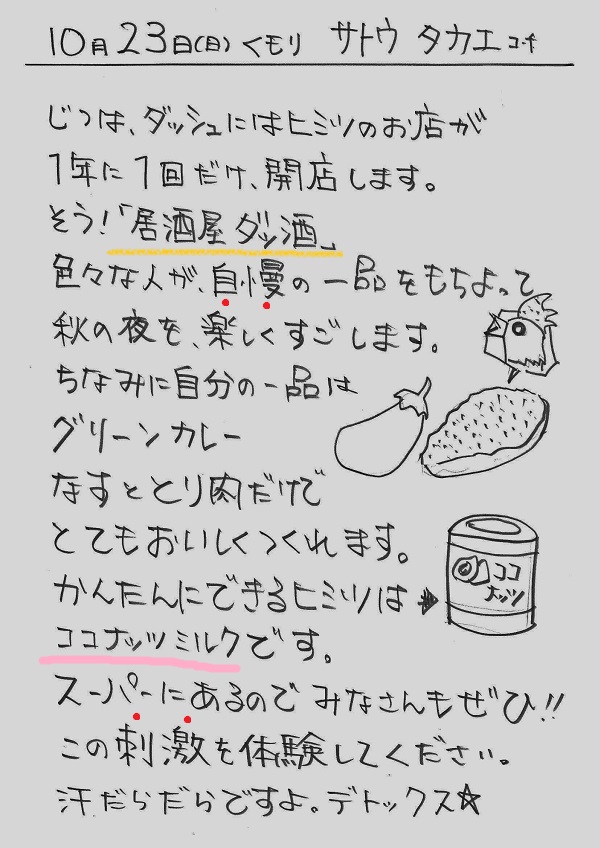 10月23日(日)くもり サトウ タカエ コーチ
じつは、ダッシュにはヒミツのお店が
1年に1回だけ、開店します。
そう!「居酒屋ダッ酒」
色々な人が、自慢の一品をもちよって
秋の夜を、楽しくすごします。
ちなみに自分の一品は
グリーンカレー
なすととり肉だけで
とてもおいしくつくれます。
かんたんにできるヒミツは
ココナッツミルクです。
スーパーにあるのでみなさんもぜひ!!
この刺激を体験してください。
汗だらだらですよ。デトックス☆
ココ
ナッツ